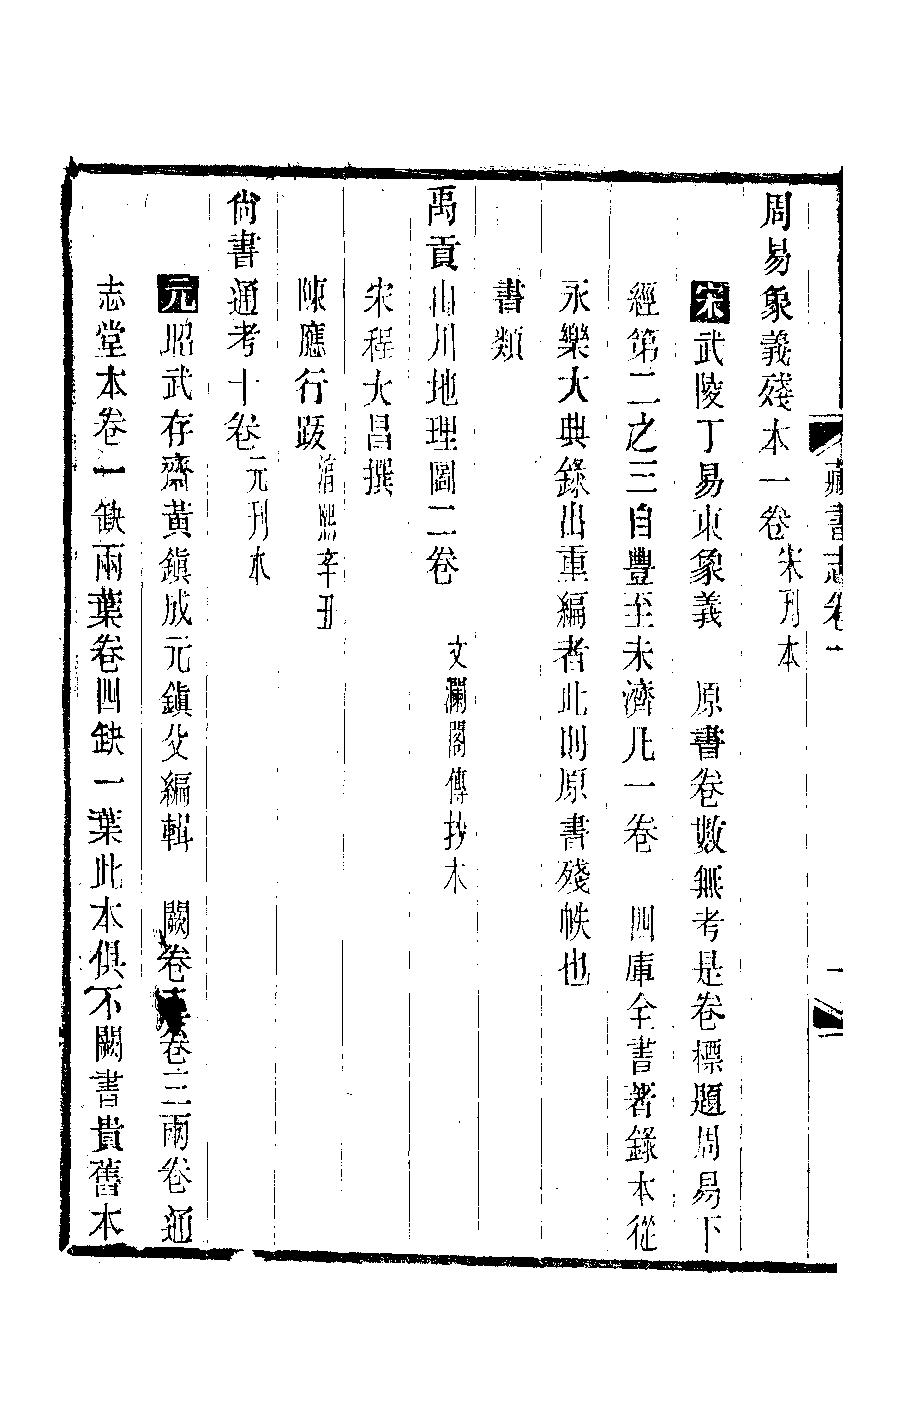 藏書志卷一
一
周易象義殘本一卷宋刊本
宋武陵丁易東象義　原書卷數無考是卷標題周易下
經第二之三自豐至未濟凡一卷　四庫全書著錄本從
永樂大典錄出重編者此則原書殘帙也
書類
禹貢山川地理圖二卷　文瀾閣傳抄本
宋程大昌撰
陳應行跋淳熙辛丑
尙書通考十卷元刊本
元昭武存齋黃鎭成元鎭父編輯　闕卷卷三兩卷通
志堂本卷一缺兩葉卷四缺一葉此本俱不闕書貴舊本